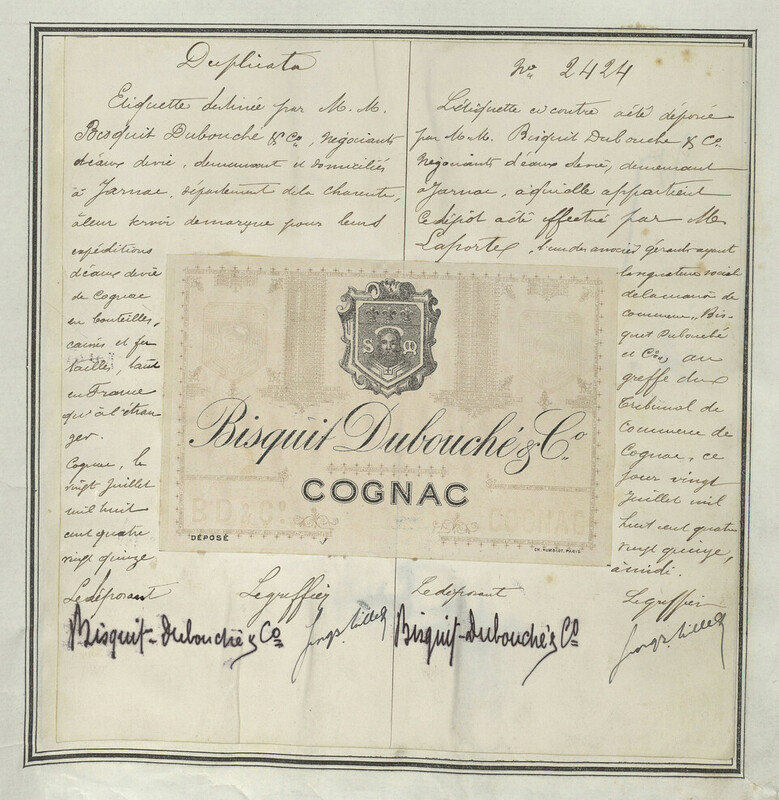 Duplicata
Etiquette destinée par M. M.
Bisquit Dubouché & Co, Négociants
d'eaux devie, demeurant et domiciliés
à Jarnac, département dela Charente,
àleur servir demarque pour leurs
expéditions
d'eaux devie
de Cognac
en bouteilles,
caisses et fu
tailles, tant
en France
qu'à l'étran
ger.
Cognac, le
vingt Juillet
mil huit
cent quatre
vingt quinze
Le déposant
Le greffier
Bisquit-Dubouché & Co
No 2424
L'étiquette ci contre aété déposée
par M. M. Bisquit Dubouché & Co.
Négociants d'eaux devie, demeurant
à Jarnac, à qui elle appartient
Ce dépôt aété effectué par M.
Laporte, l'un des associés gérants ayant
la signature social
dela maison de
commerce, Bis-
quit Dubouché
et Co, au
greffe du
Tribunal de
Commerce de
Cognac, ce
jour vingt
Juillet mil
huit cent quatre
vingt quinze,
à midi.
Le déposant
Le greffier
Bisquit-Dubouché & Co
Bisquit Dubouché & Co.
COGNAC
B.D & Co
COGNAC
DÉPOSÉ